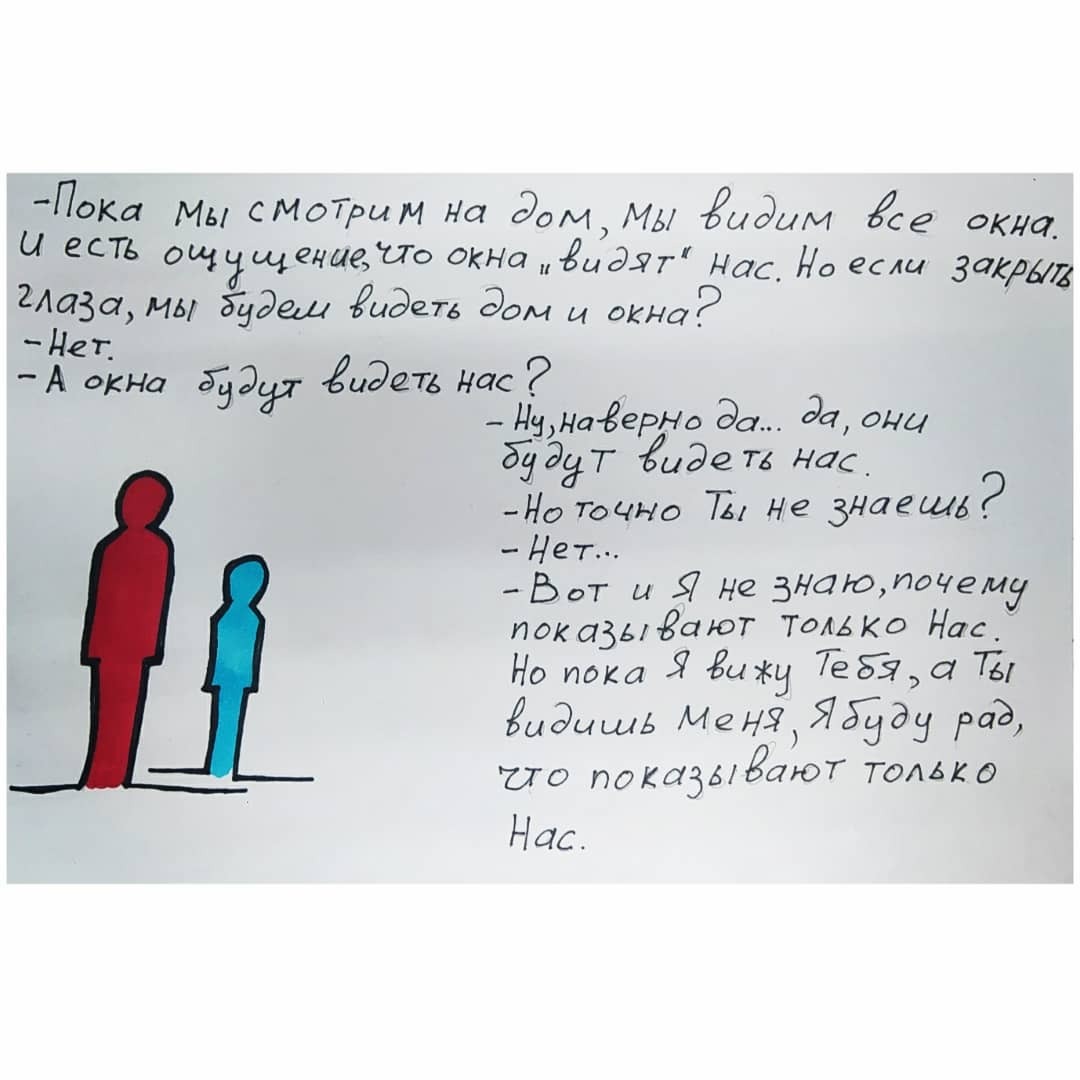 -Пока мы смотрим на дом, мы видим все окна.
и есть ощущение, что окна „видят“ нас. Но если закрыть
глаза, мы будем видеть дом и окна?
-Нет.
-А окна будут видеть нас?
- Ну, наверно да... да, они
будут видеть нас.
-Но точно Ты не знаешь?
-Нет...
-Вот и Я не знаю, почему
показывают только Нас.
Но пока Я вижу Тебя, а Ты
видишь Меня, Я буду рад,
что показывают только
Нас.